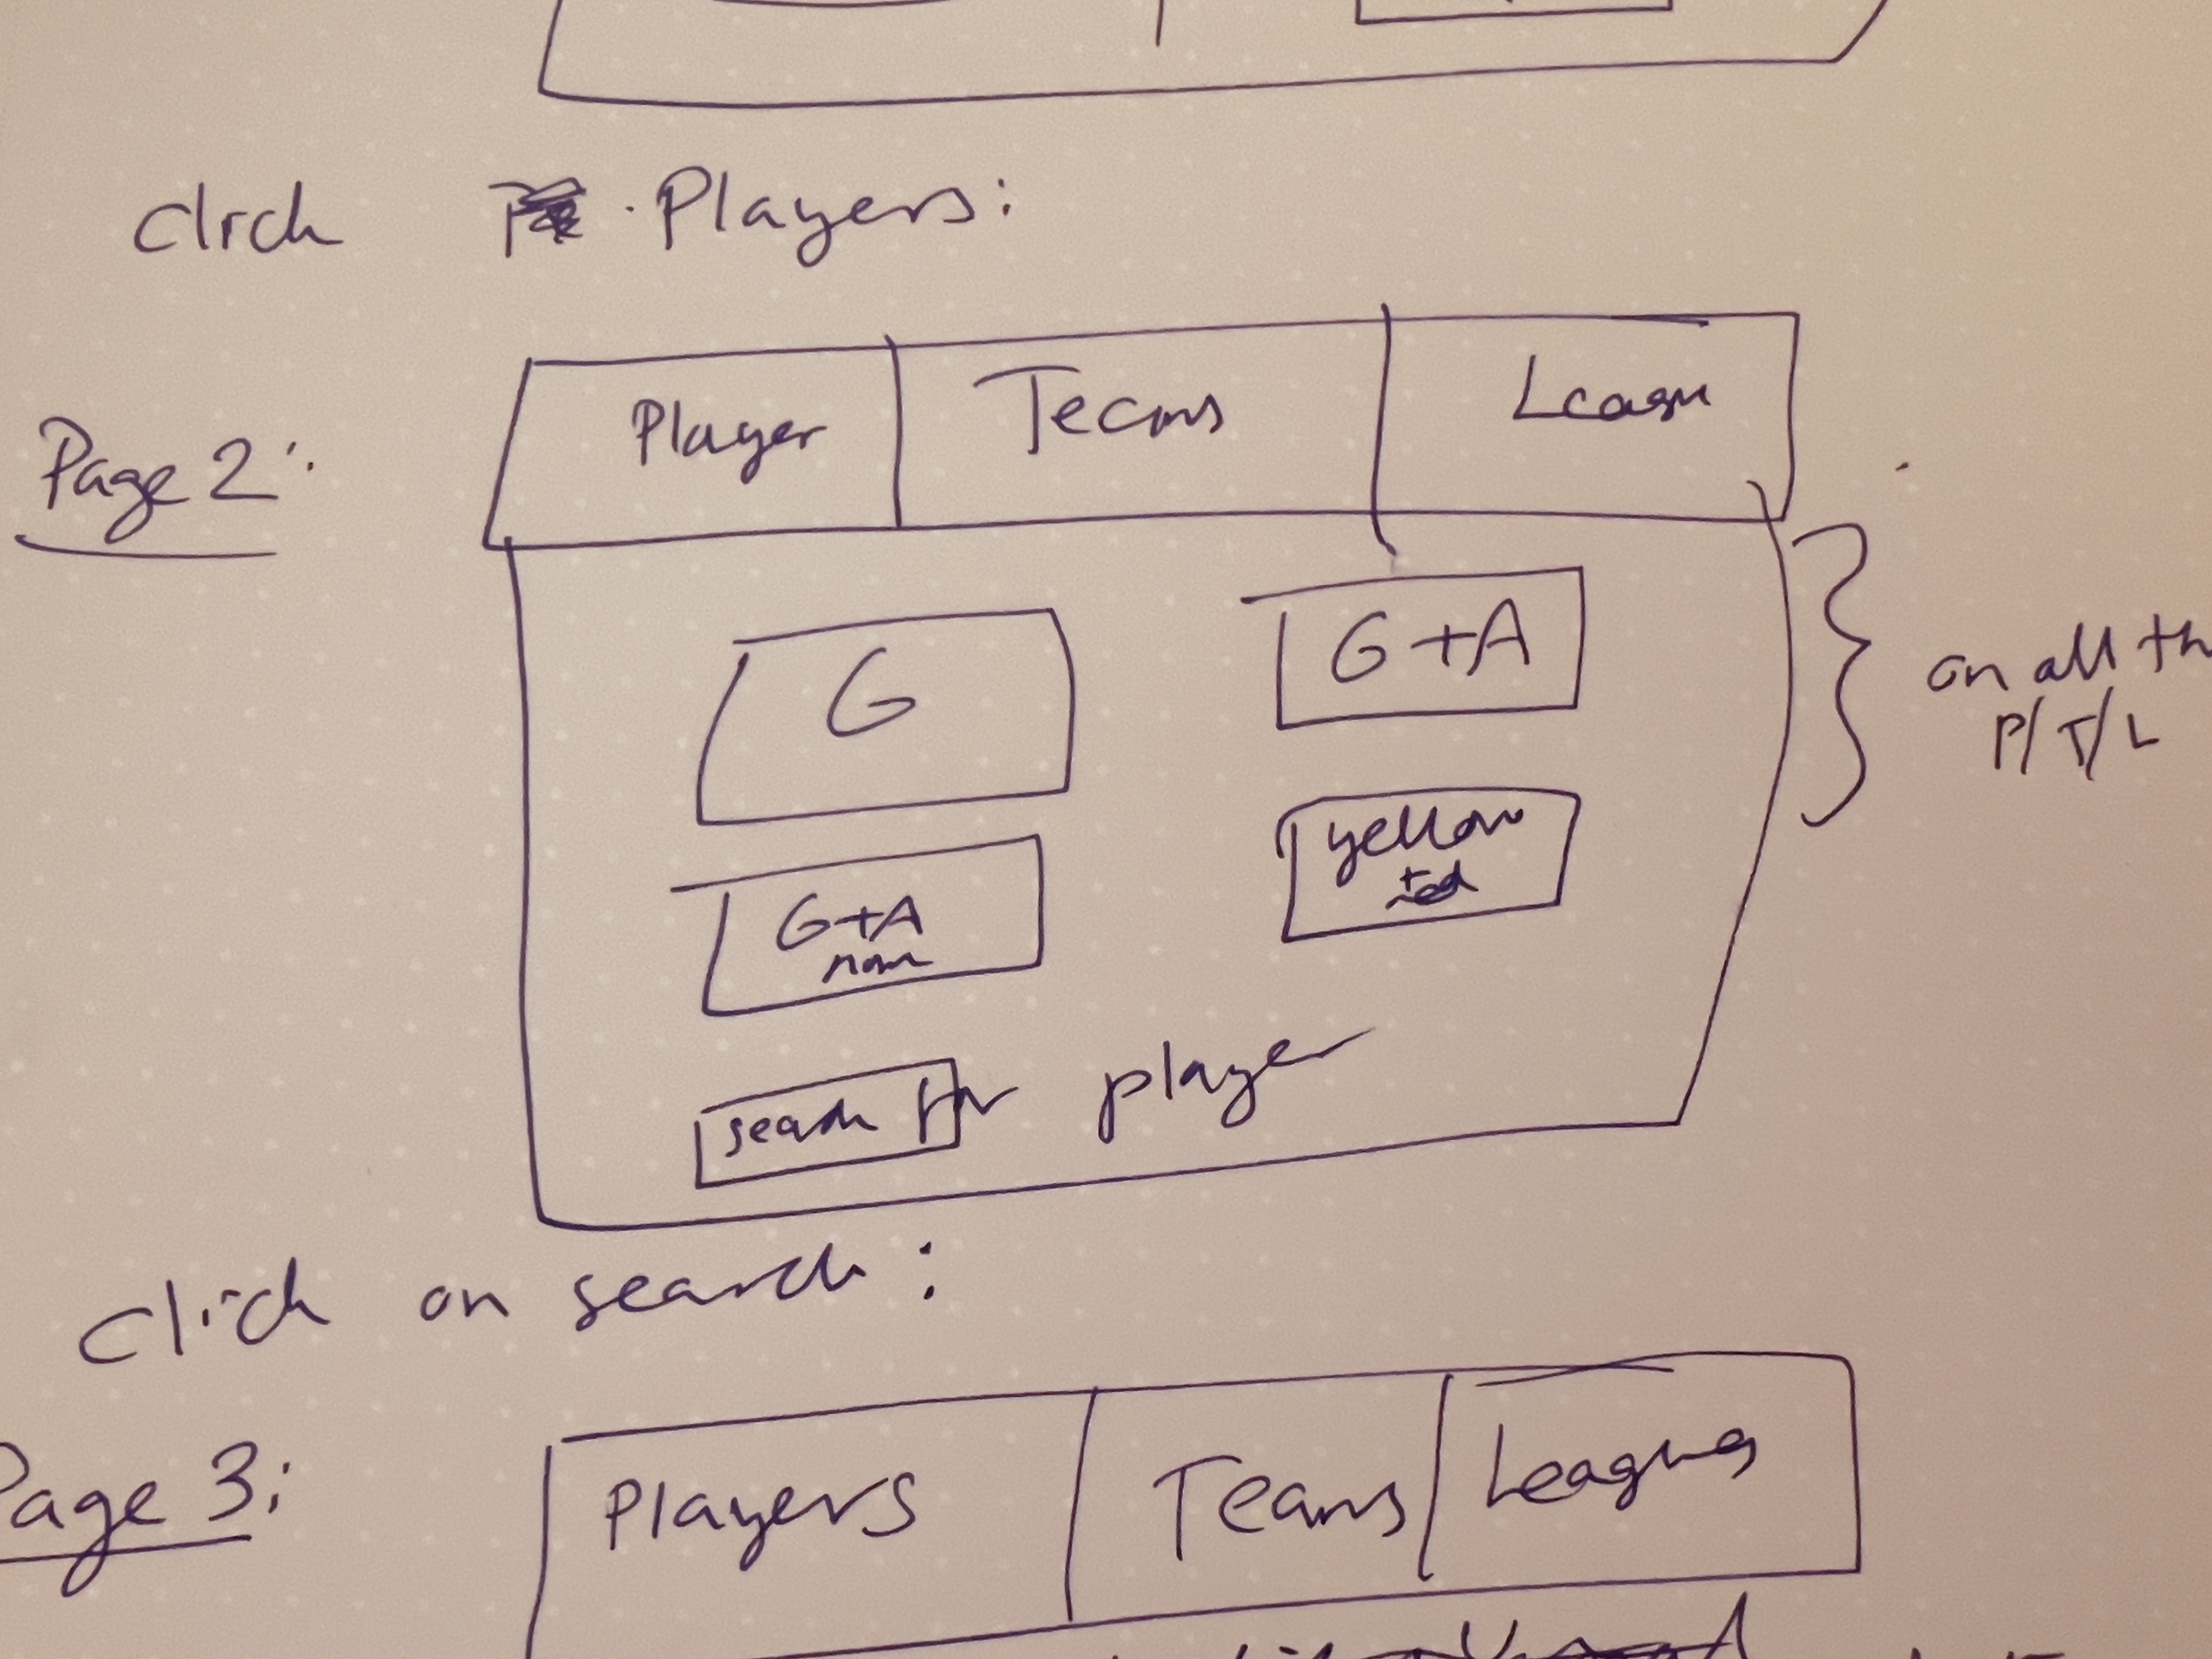 click Players:
Page 2:
Player Teams Leagu
G G+A
on all th
P/T/L
G+A
yellow
+ red
search for player
click on search:
Page 3:
Players Teams Leagues